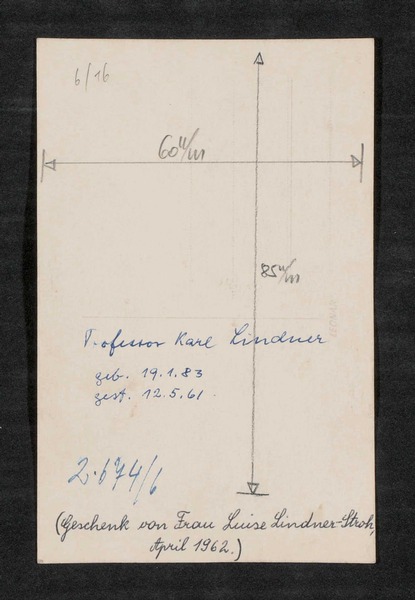 6/16
60 m/m
85 m/m
Professor Karl Lindner
geb. 19.1.83
gest. 12.5.61.
2.674/6
(Geschenk von Frau Luise Lindner-Stroh,
April 1962.)